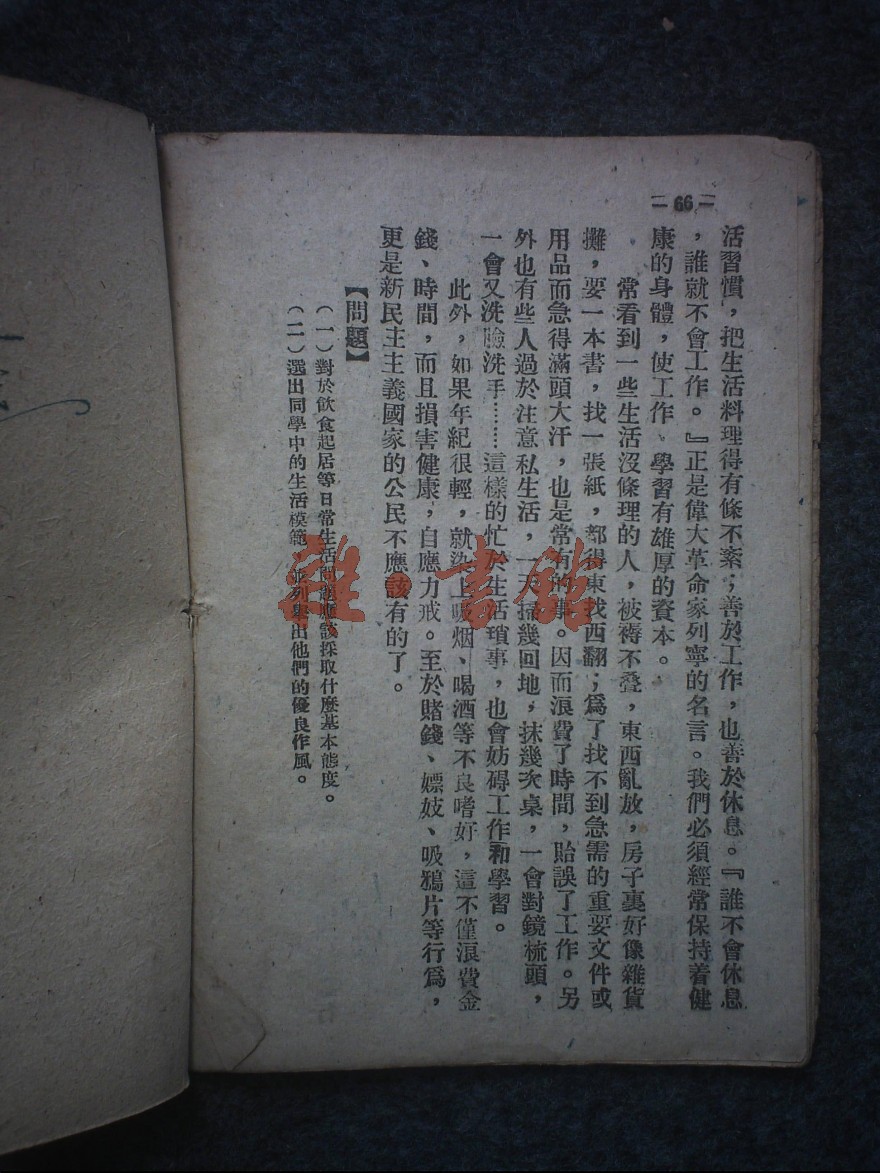 — 66 —
活習慣，把生活料理得有條不紊；善於工作，也善於休息。『誰不會休息
，誰就不會工作。』正是偉大革命家列寧的名言。我們必須經常保持着健
康的身體，使工作、學習有雄厚的資本。
常看到一些生活沒條理的人，被褥不叠，東西亂放，房子裏好像雜貨
攤，要一本書，找一張紙，都得東找西翻；爲了找不到急需的重要文件或
用品而急得滿頭大汗，也是常有的事。因而浪費了時間，貽誤了工作。另
外也有些人過於注意私生活，一天掃幾回地，抹幾次桌，一會對鏡梳頭，
一會又洗臉洗手……這樣的忙於生活瑣事，也會妨碍工作和學習。
此外，如果年紀很輕，就染上吸烟、喝酒等不良嗜好，這不僅浪費金
錢、時間，而且損害健康，自應力戒。至於賭錢、嫖妓、吸鴉片等行爲，
更是新民主主義國家的公民不應該有的了。
【問題】
（一）對於飲食起居等日常生活問題應該採取什麼基本態度。
（二）選出同學中的生活模範，並列舉出他們的優良作風。
雜·書館